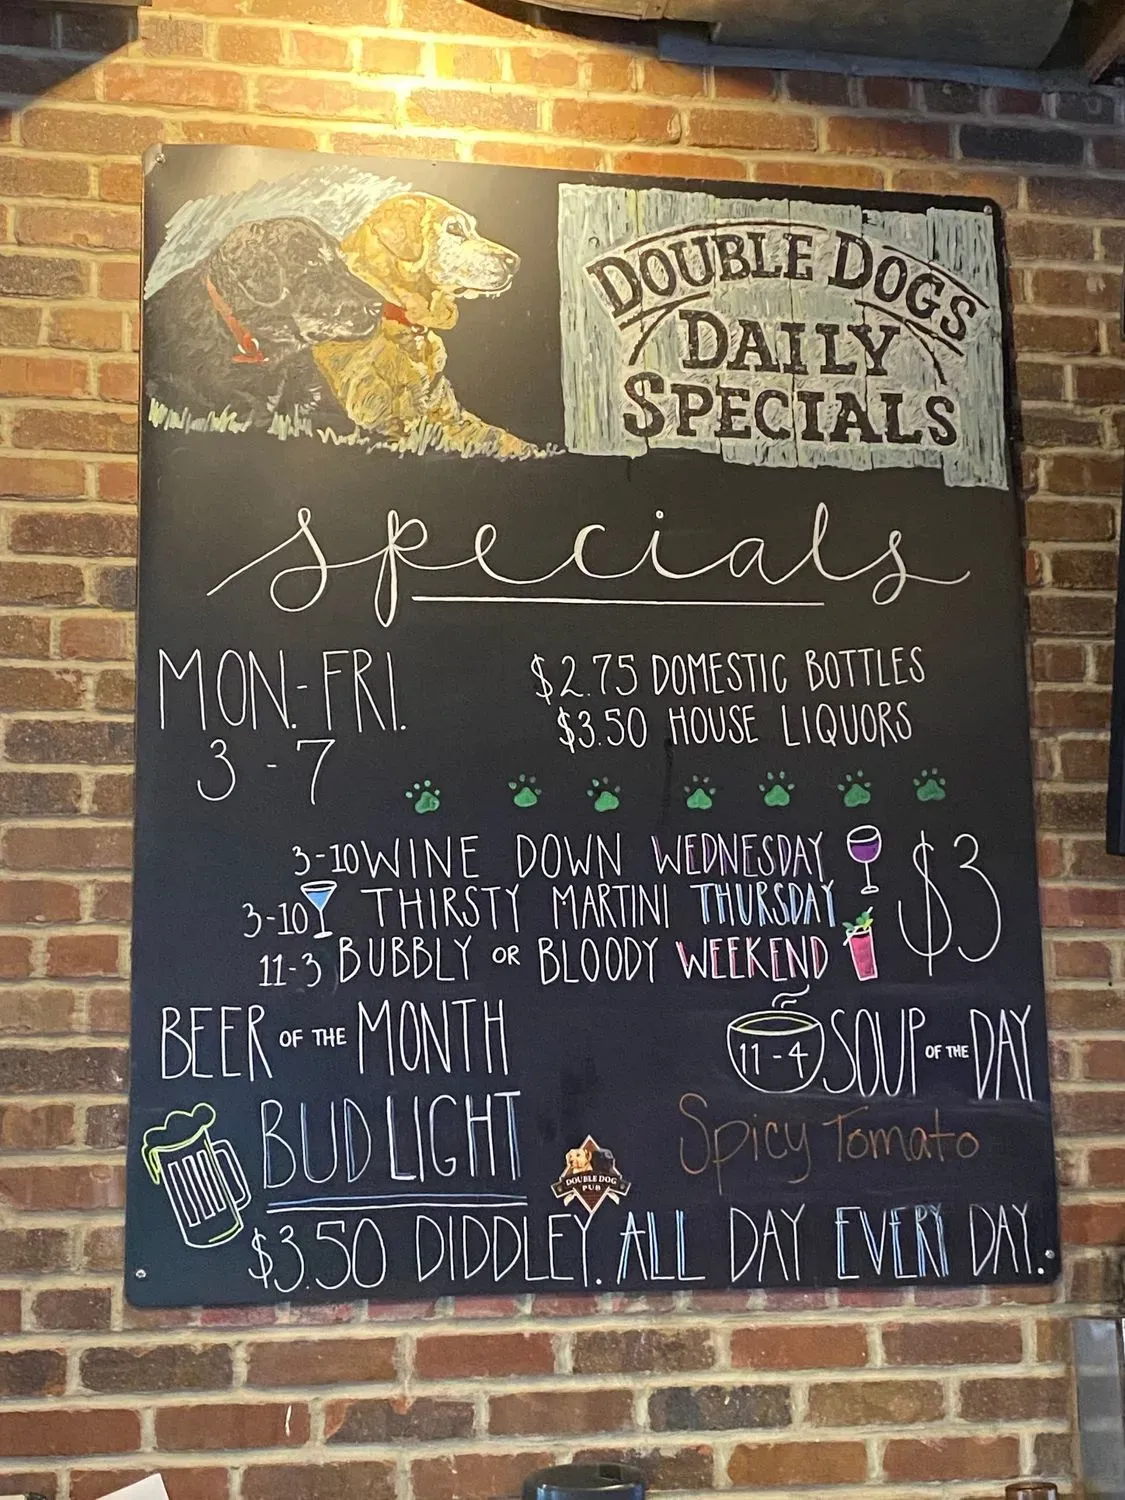 DOUBLE DOGS
DAILY
SPECIALS
specials
MON.-FRI.
3 - 7
$2.75 DOMESTIC BOTTLES
$3.50 HOUSE LIQUORS
3-10 WINE DOWN WEDNESDAY
3-10 THIRSTY MARTINI THURSDAY
11-3 BUBBLY OR BLOODY WEEKEND
$3
BEER OF THE MONTH
BUD LIGHT
11-4 SOUP OF THE DAY
Spicy Tomato
DOUBLE DOG
PUB
$3.50 DIDDLEY. ALL DAY EVERY DAY.